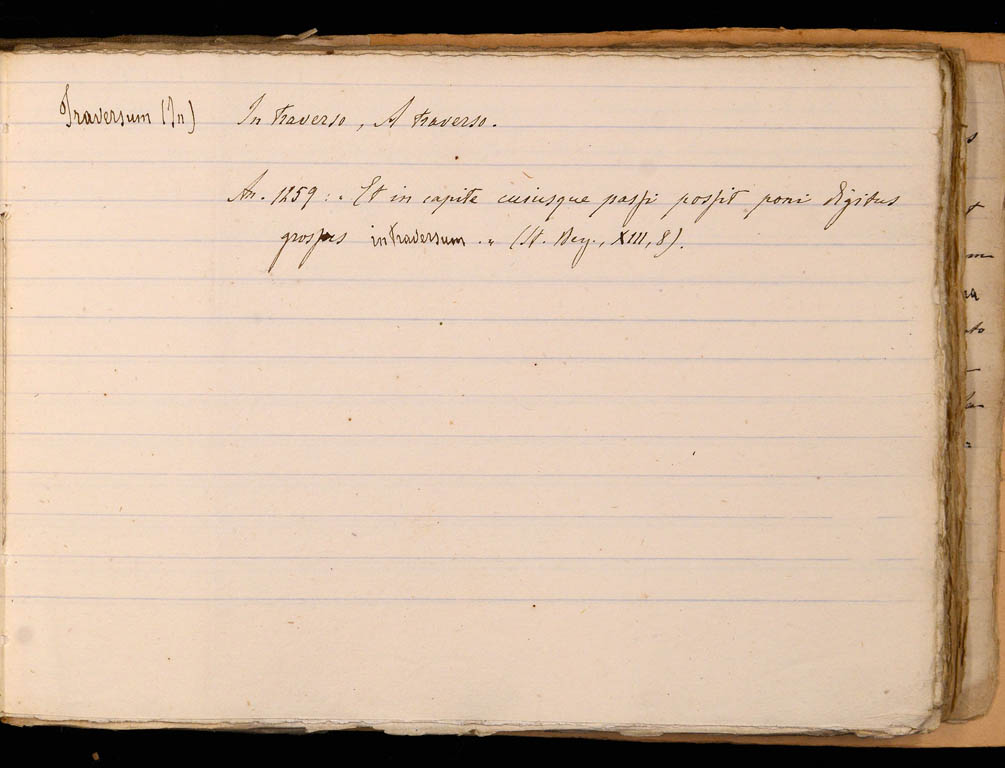 Traversum (In) In traverso, A traverso.
An. 1259: „ Et in capite cuiusque passi possit poni digitus
grossus in traversum. „ (St. Bey., XIII, 8).